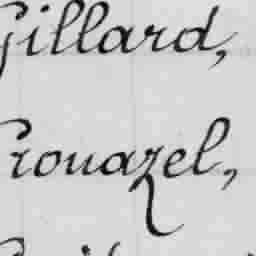 Gillard,
Crouazel,